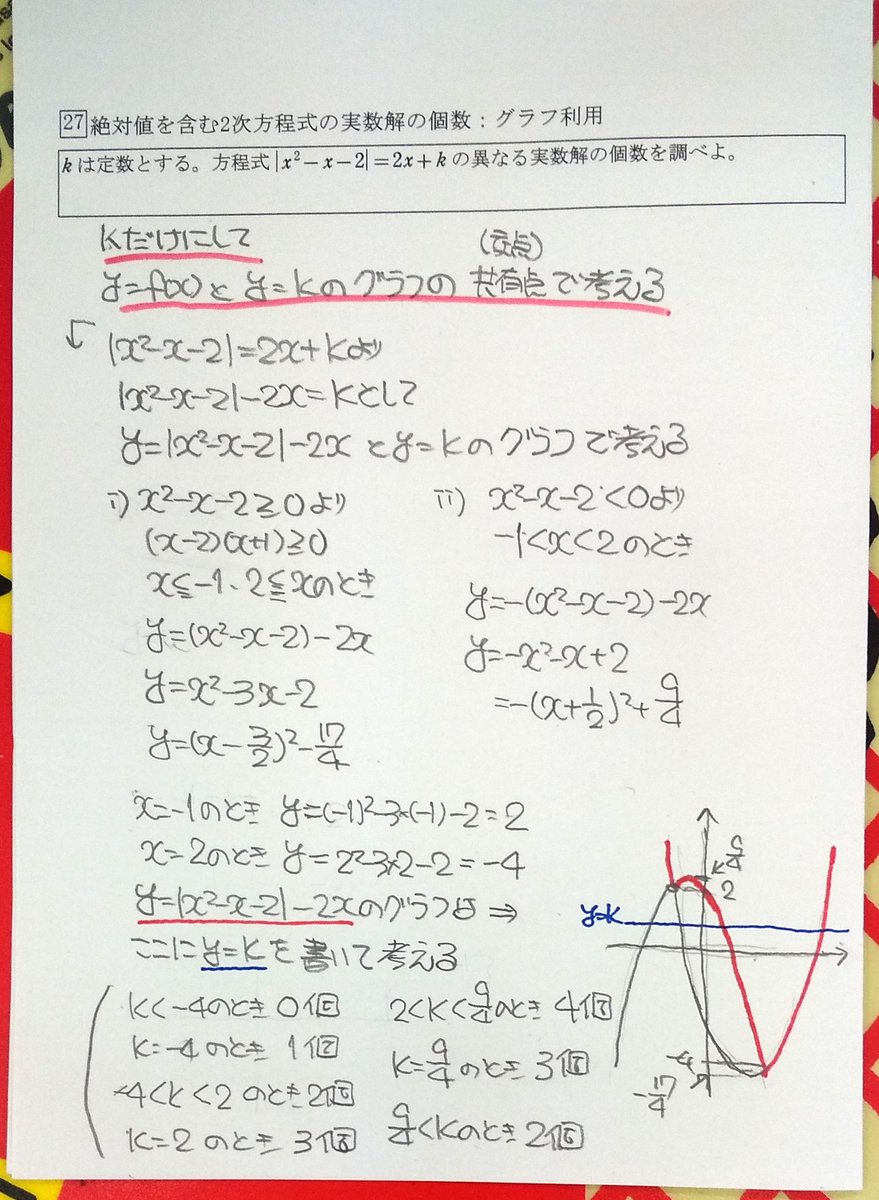 27 絶対値を含む2次方程式の実数解の個数：グラフ利用
kは定数とする。方程式|x²-x-2|=2x+kの異なる実数解の個数を調べよ。
kだけにして
(交点)
y=f(x)とy=kのグラフの共有点で考える
|x²-x-2|=2x+kより
|x²-x-2|-2x=kとして
y=|x²-x-2|-2xとy=kのグラフで考える
i) x²-x-2≧0より
(x-2)(x+1)≧0
x≦-1、2≦xのとき
y=(x²-x-2)-2x
y=x²-3x-2
y=(x-3/2)²-17/4
ii) x²-x-2<0より
-1<x<2のとき
y=-(x²-x-2)-2x
y=-x²-x+2
=-(x+1/2)²+9/4
x=-1のとき y=(-1)²-3×(-1)-2=2
x=2のとき y=2²-3×2-2=-4
y=|x²-x-2|-2xのグラフは⇒
ここにy=kを書いて考える
k<-4のとき 0個
k=-4のとき 1個
-4<k<2のとき2個
k=2のとき 3個
2<k<9/4のとき 4個
k=9/4のとき 3個
9/4<kのとき 2個
9/4
2
y=k
-4
-17/4